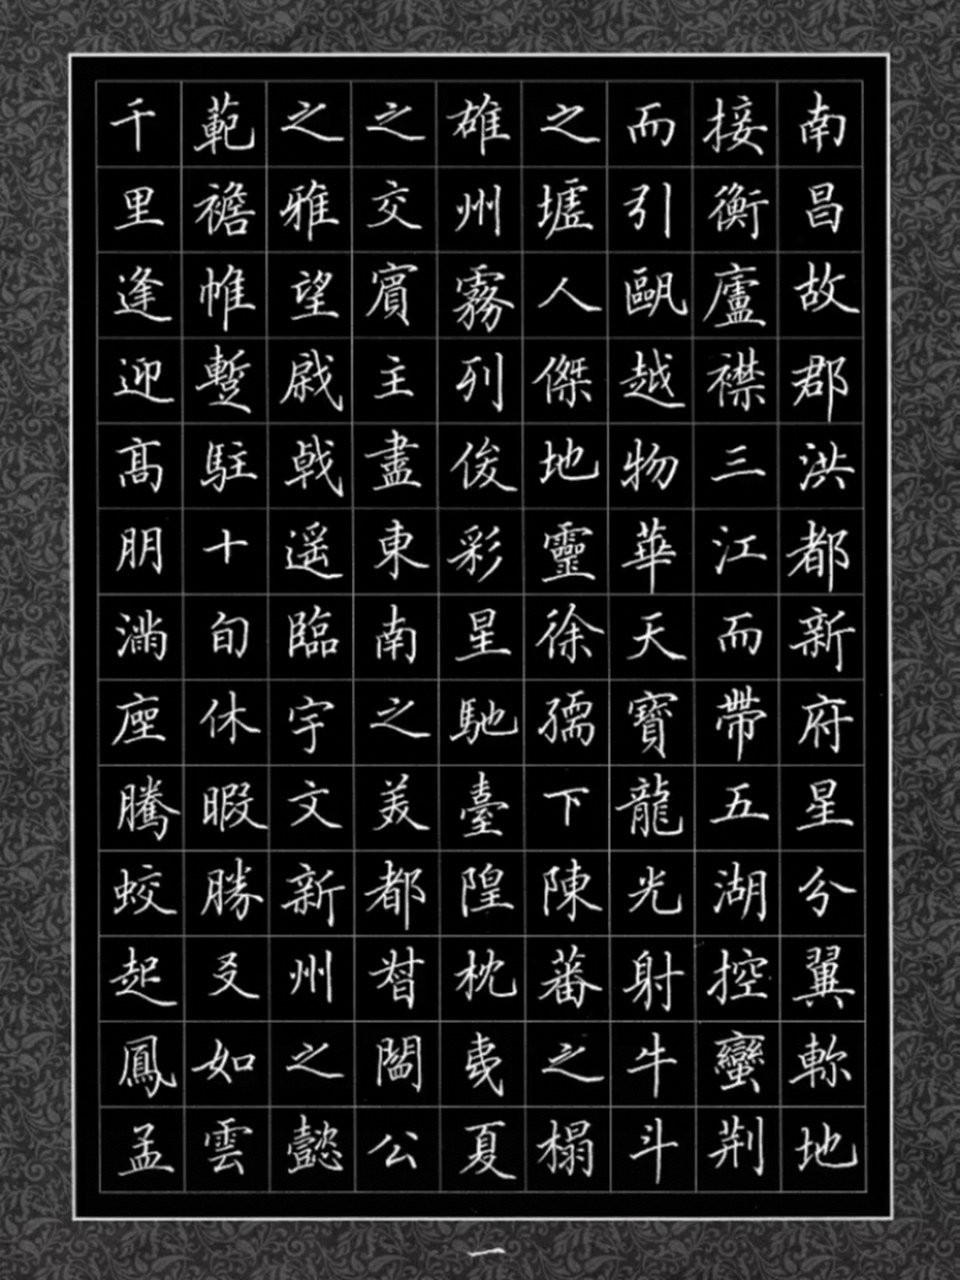 南昌故郡洪都新府星分翼軫地
接衡廬襟三江而帶五湖控蠻荆
而引甌越物華天寶龍光射牛斗
之墟人傑地靈徐孺下陳蕃之榻
雄州霧列俊彩星馳臺隍枕夷夏
之交賓主盡東南之美都督閻公
之雅望戚戟遥臨宇文新州之懿
範襜帷暫駐十旬休暇勝友如雲
千里逢迎髙朋滿座騰蛟起鳳孟
一